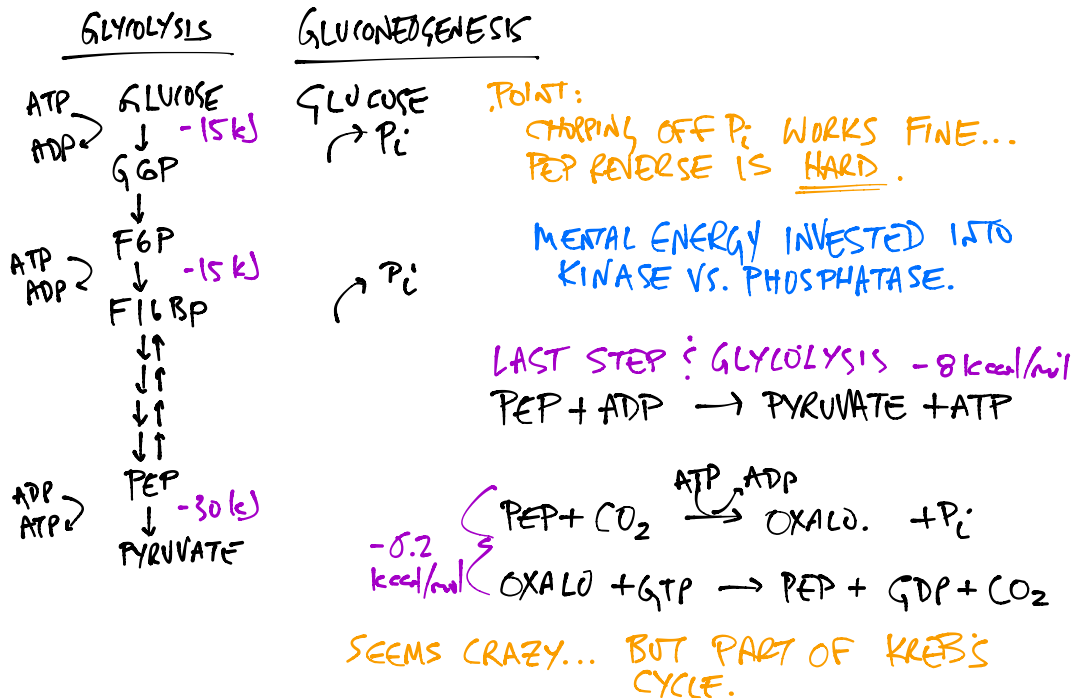 GLYCOLYSIS
GLUCONEOGENESIS
ATP
ADP
GLUCOSE
-15kJ
G6P
F6P
ATP
ADP
-15kJ
F16BP
PEP
ADP
ATP
-30kJ
PYRUVATE
GLUCOSE
Pi
Pi
POINT:
CHOPPING OFF Pi WORKS FINE...
PEP REVERSE IS HARD.
MENTAL ENERGY INVESTED INTO
KINASE VS. PHOSPHATASE.
LAST STEP : GLYCOLYSIS -8 kcal/mol
PEP + ADP → PYRUVATE + ATP
ATP ADP
PEP + CO2 → OXALO. + Pi
-0.2
kcal/mol
OXALO + GTP → PEP + GDP + CO2
SEEMS CRAZY... BUT PART OF KREB'S
CYCLE.